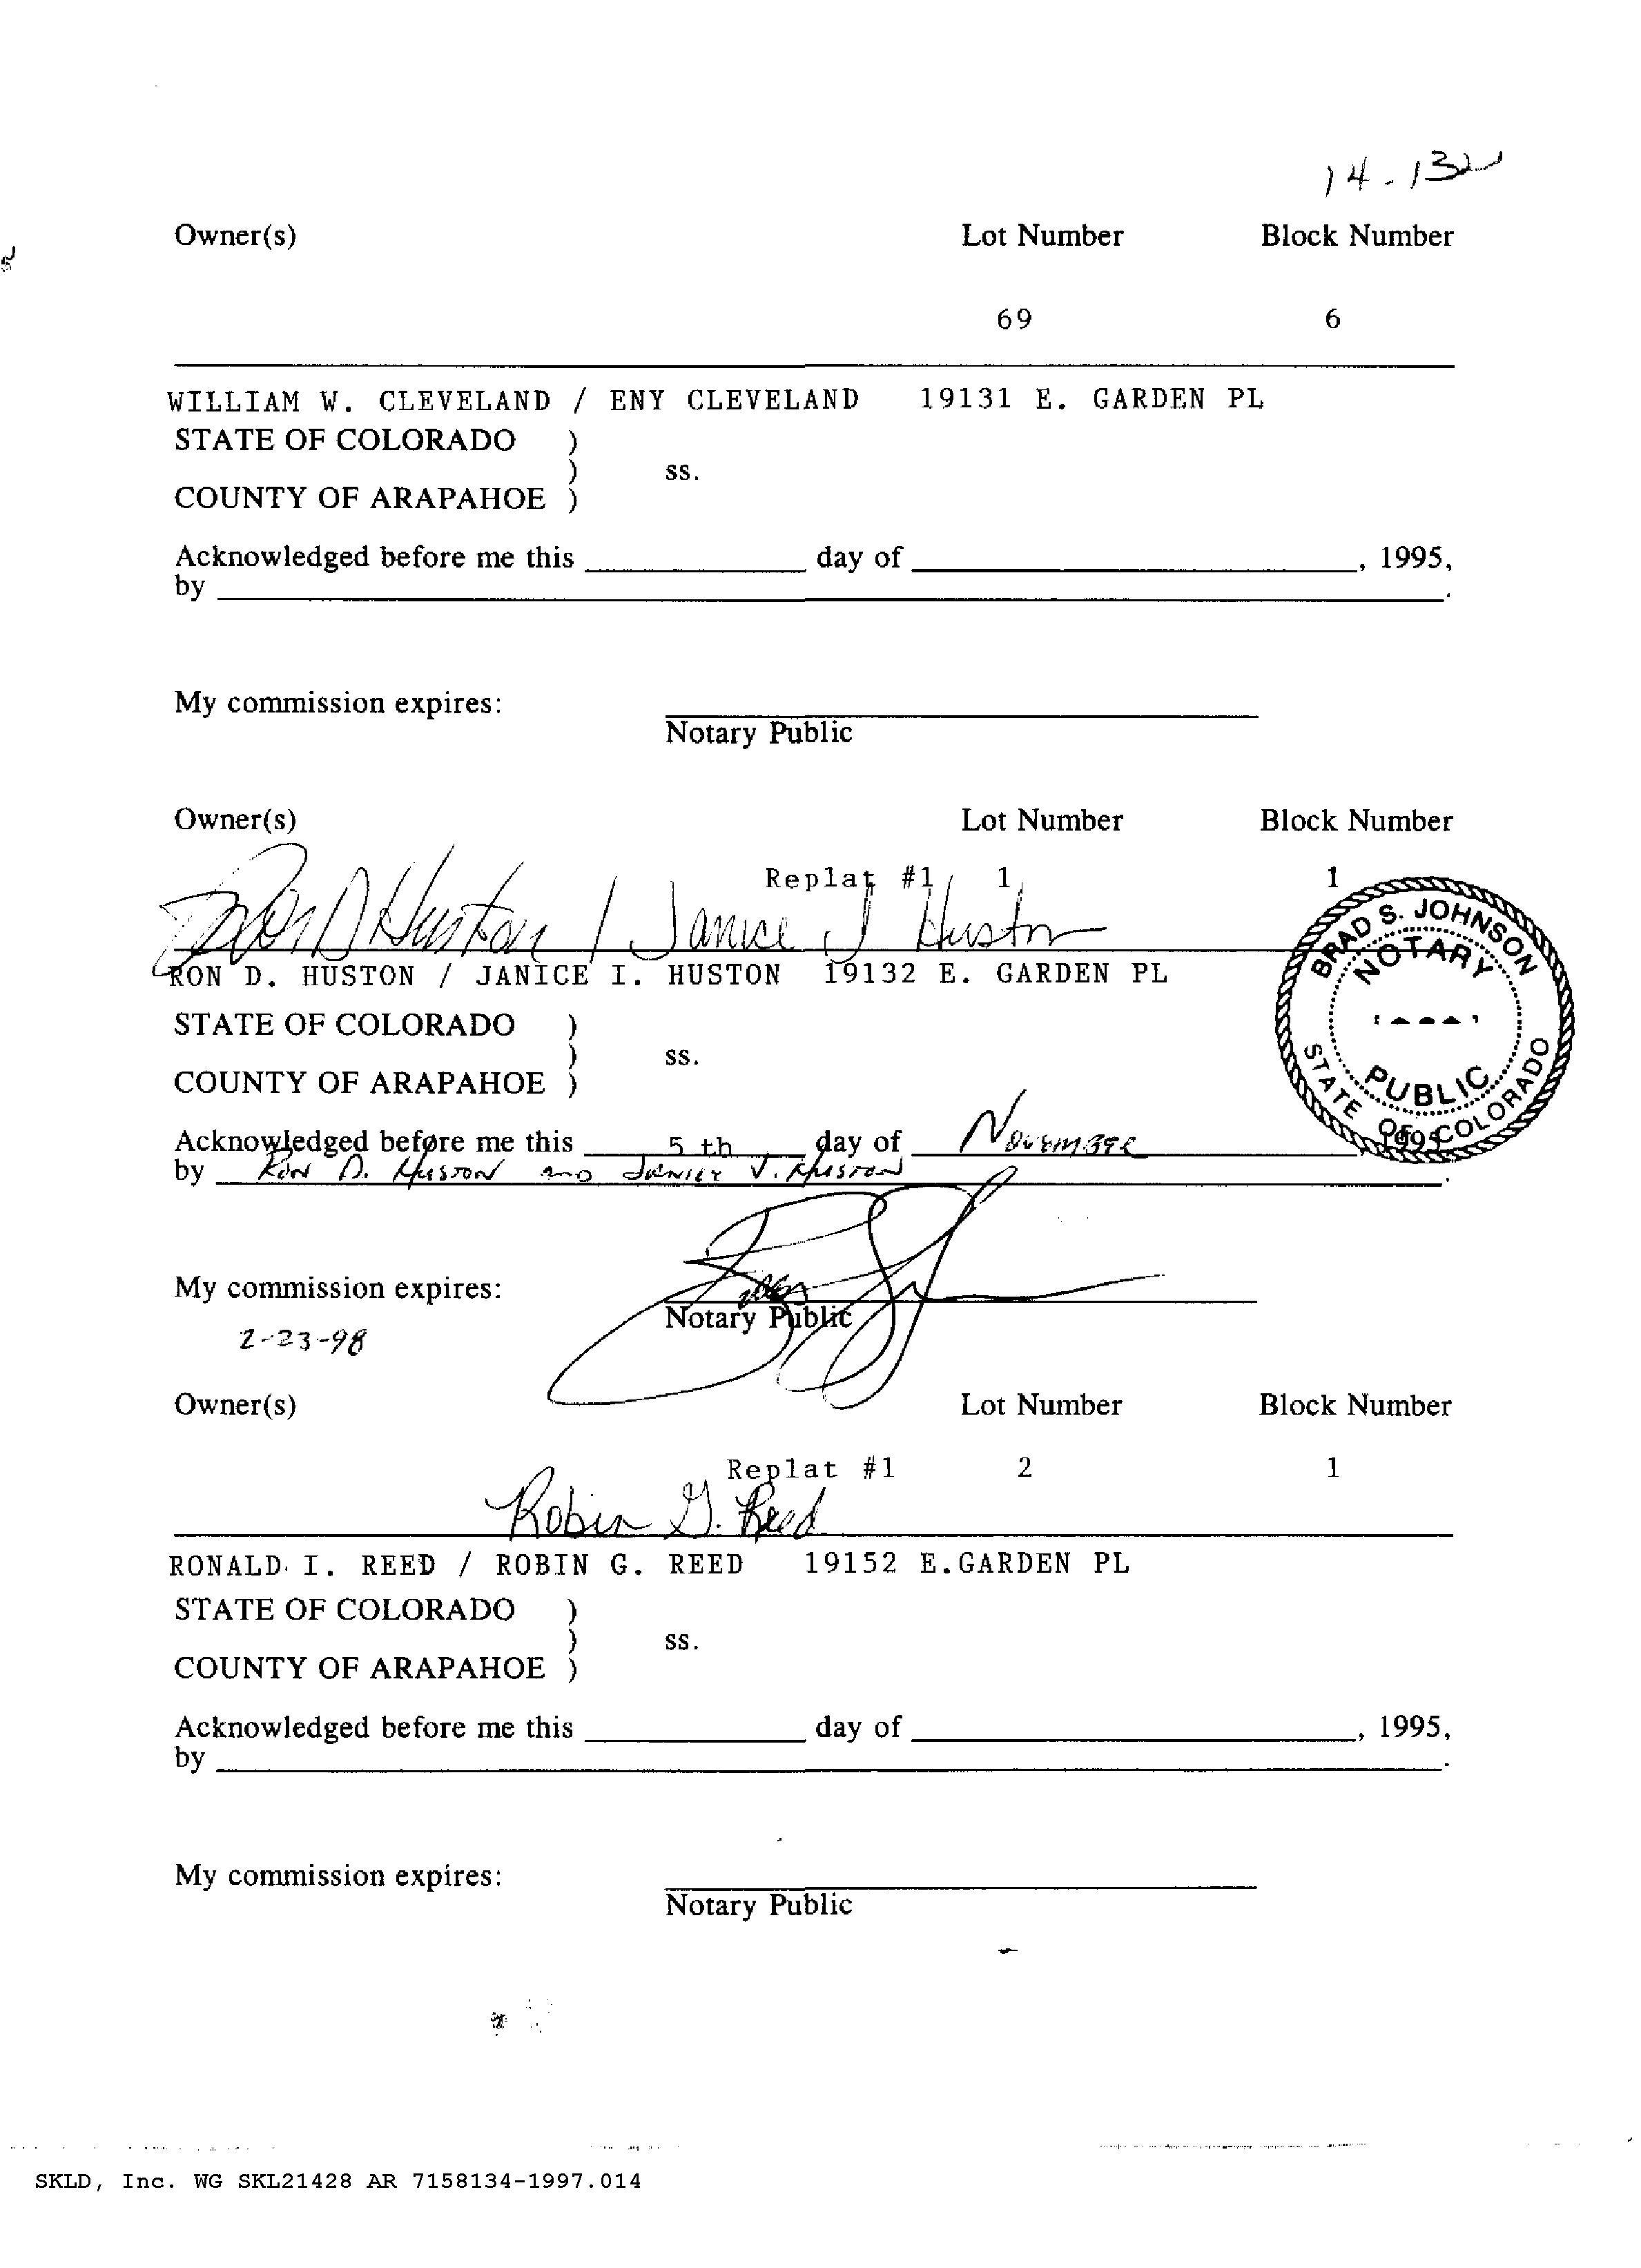 14-132
Owner(s) Lot Number Block Number
69 6
WILLIAM W. CLEVELAND / ENY CLEVELAND 19131 E. GARDEN PL
STATE OF COLORADO )
) ss.
COUNTY OF ARAPAHOE )
Acknowledged before me this ____ day of ____, 1995,
by ____.
My commission expires:
Notary Public
Owner(s) Lot Number Block Number
Replat #1 1 1
Ron D Huston / Janice J Huston
RON D. HUSTON / JANICE I. HUSTON 19132 E. GARDEN PL
BRAD S. JOHNSON
NOTARY
PUBLIC
STATE OF COLORADO
STATE OF COLORADO )
) ss.
COUNTY OF ARAPAHOE )
Acknowledged before me this 5 th day of November 1995
by Ron D. Huston and Janice J. Huston.
My commission expires:
Notary Public
2-23-98
Owner(s) Lot Number Block Number
Replat #1 2 1
Robin G. Reed
RONALD I. REED / ROBIN G. REED 19152 E.GARDEN PL
STATE OF COLORADO )
) ss.
COUNTY OF ARAPAHOE )
Acknowledged before me this ____ day of ____, 1995,
by ____.
My commission expires:
Notary Public
SKLD, Inc. WG SKL21428 AR 7158134-1997.014